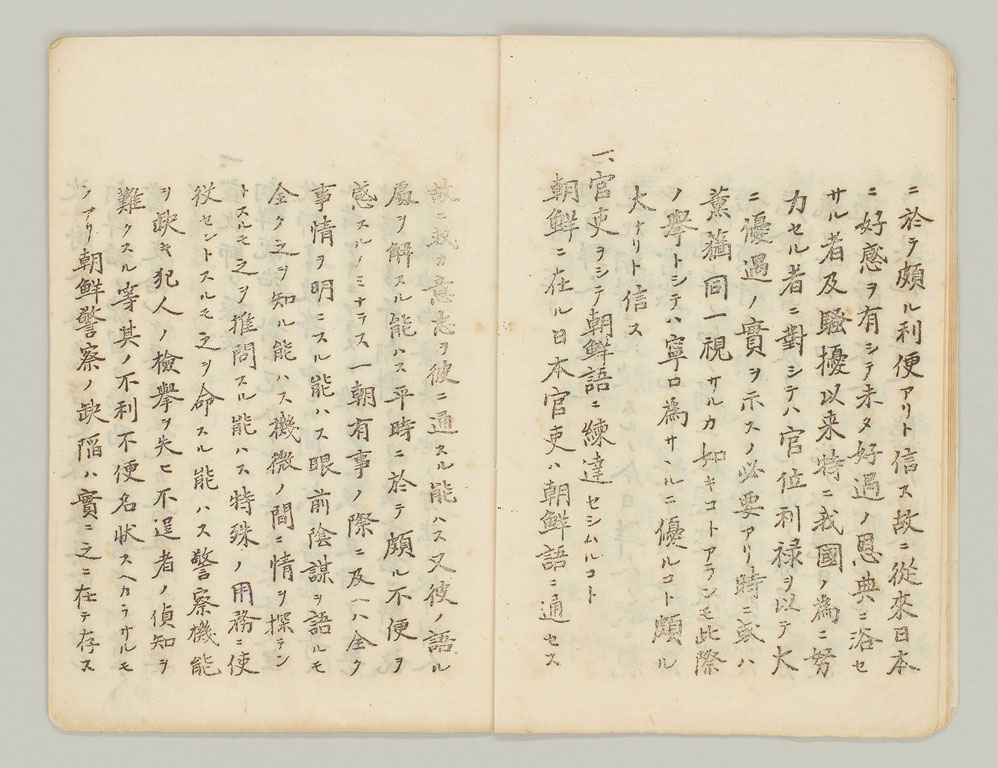 ニ於テ頗ル利便アリト信ス故ニ從來日本
ニ好感ヲ有シテ未タ好遇ノ恩典ニ浴セ
サル者及騷擾以来特ニ我國ノ為ニ努
力セル者ニ對シテハ官位利禄ヲ以テ大
ニ優遇ノ實ヲ示スノ必要アリ時ニ或ハ
薫蕕同一視サルカ如キコトアランモ此際
ノ擧トシテハ寧ロ為サヽルニ優ルコト頗ル
大ナリト信ス
一、官吏ヲシテ朝鮮語ニ練達セシムルコト
朝鮮ニ在ル日本官吏ハ朝鮮語ニ通セス
故ニ我カ意志ヲ彼ニ通スル能ハス又彼ノ語ル
處ヲ解スル能ハス平時ニ於テ頗ル不便ヲ
感スルノミナラス一朝有事ノ際ニ及ヘハ全ク
事情ヲ明ニスル能ハス眼前陰謀ヲ語ルモ
全ク之ヲ知ル能ハス機微ノ間ニ情ヲ探テン
トスルモ之ヲ推問スル能ハス特殊ノ用務ニ使
役セントスルモ之ヲ命スル能ハス警察機能
ヲ缺キ犯人ノ檢擧ヲ失ヒ不逞者ノ偵知ヲ
難クスル等其ノ不利不便名状スヘカラサルモ
ノアリ朝鮮警察ノ缺陥ハ實ニ之ニ在テ存ス